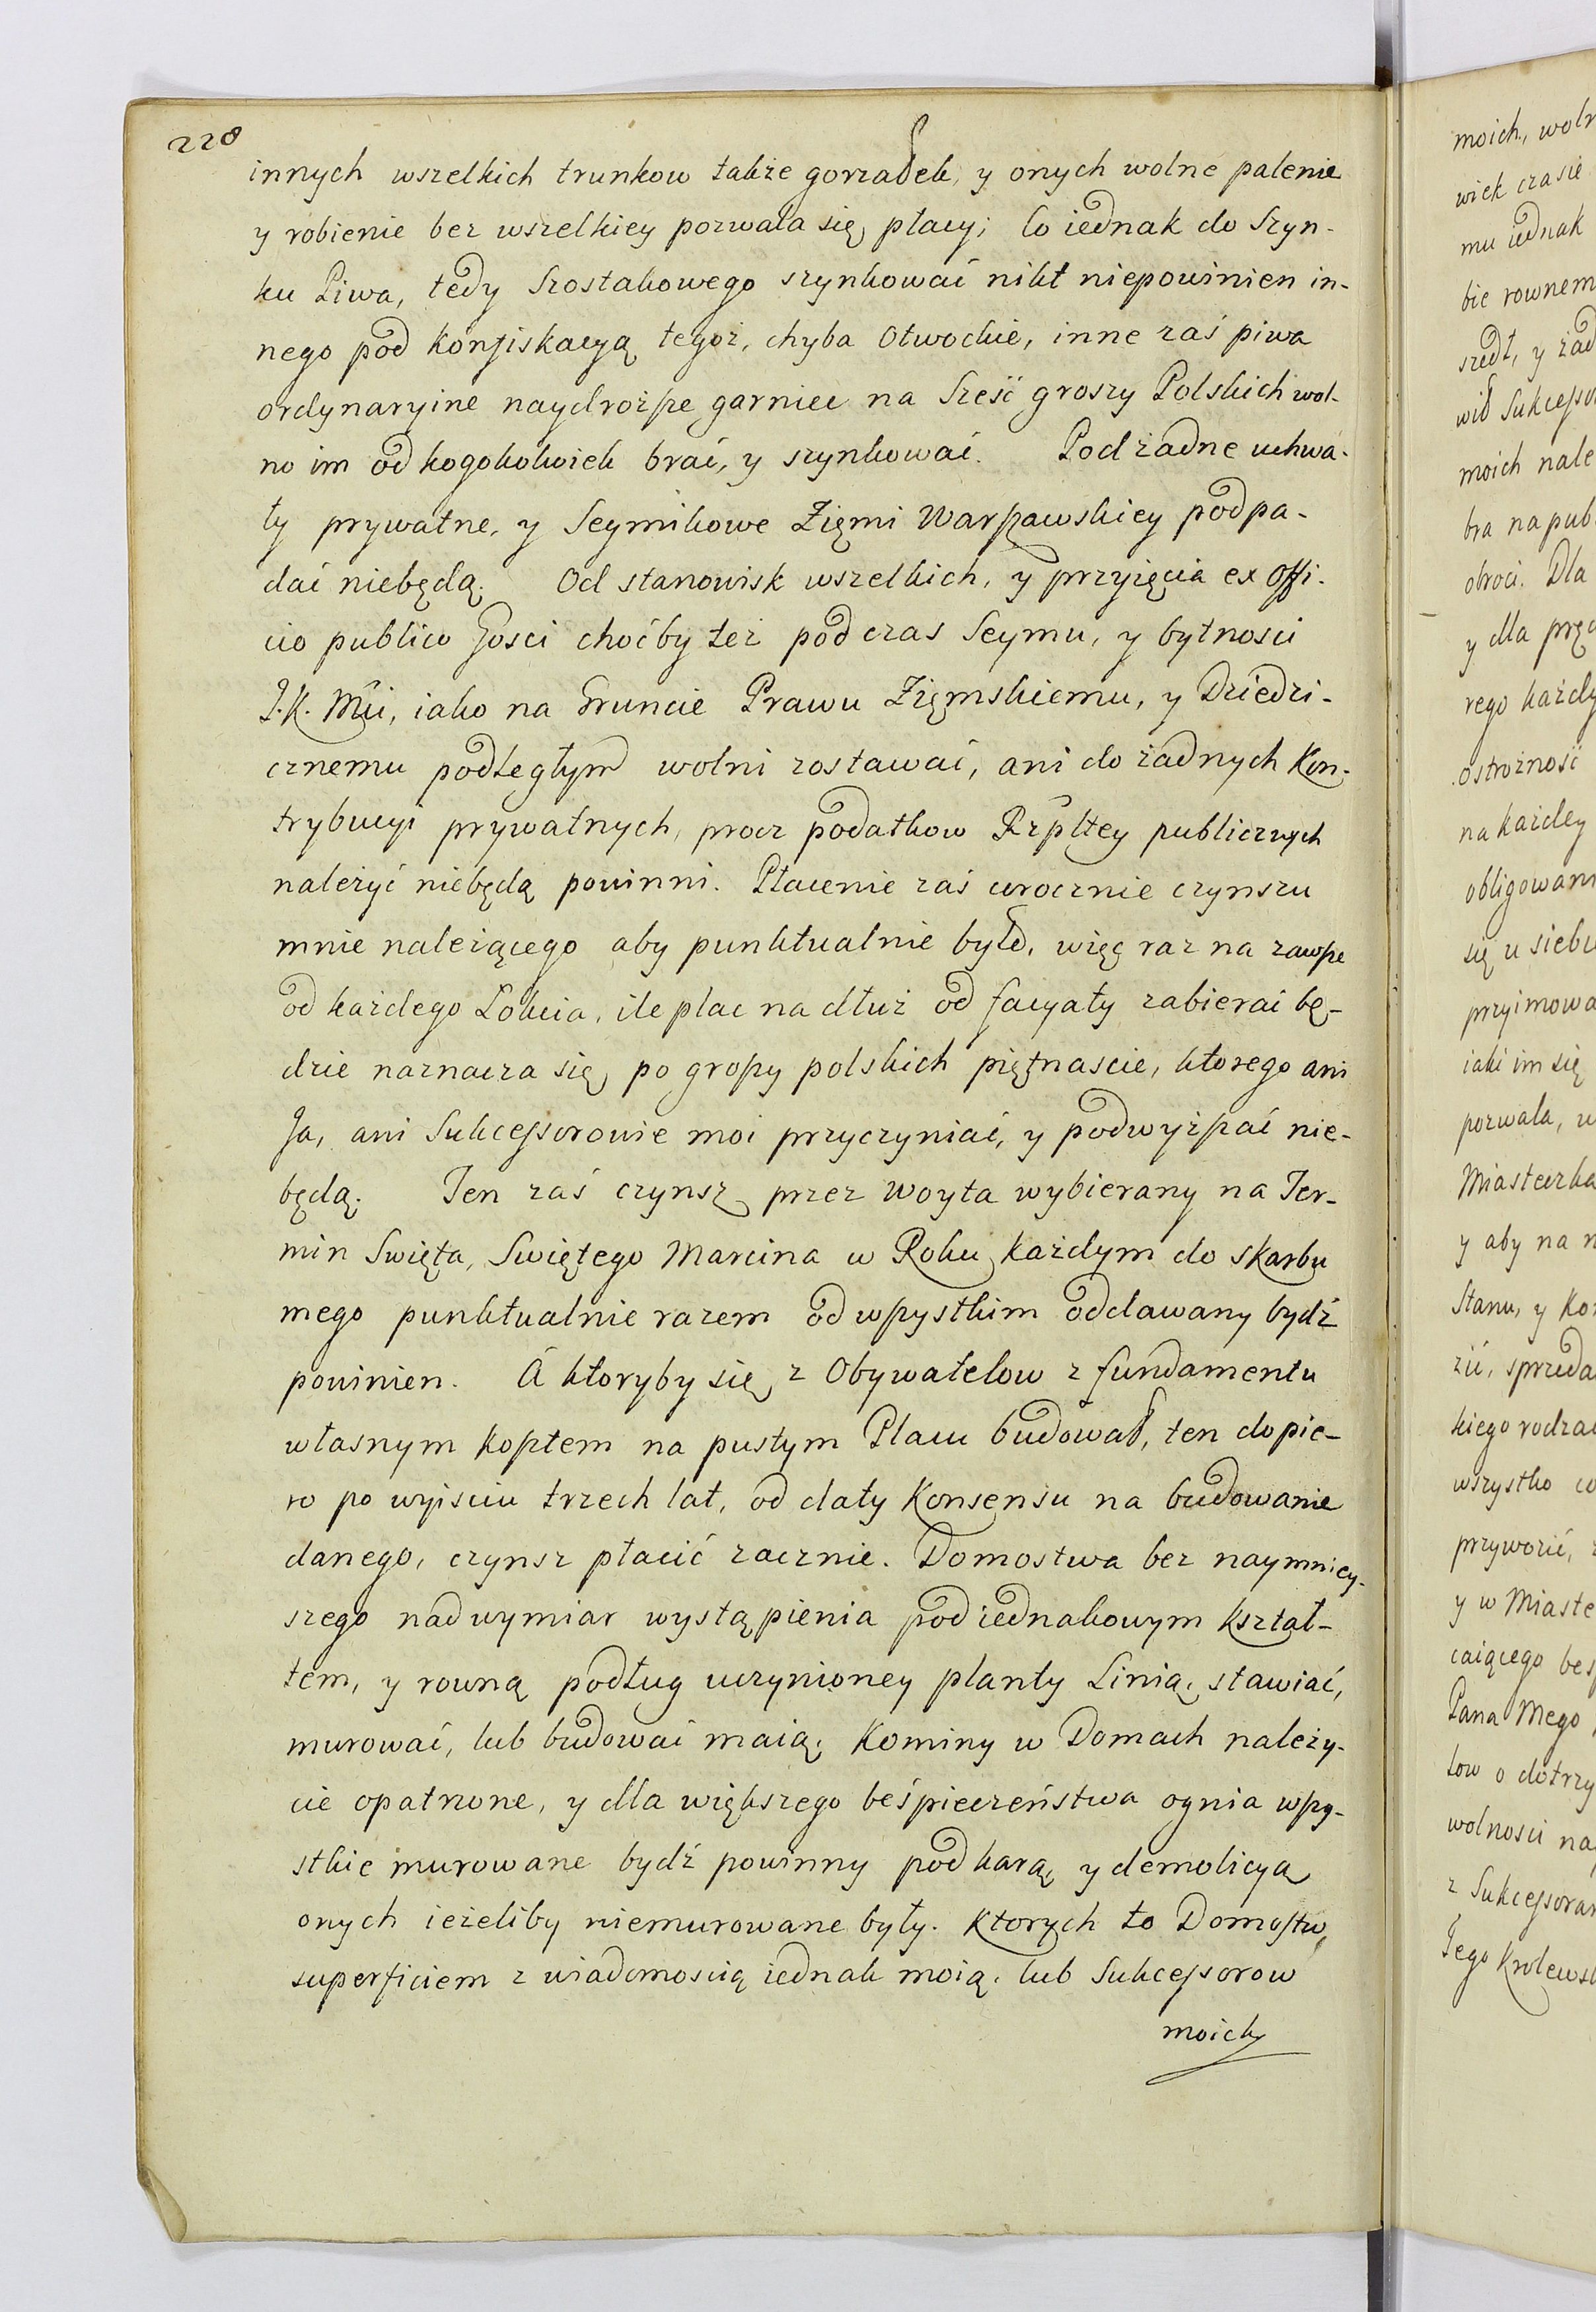 228
innych wszelkich trunkow także gorzałek, y onych wolne palenie
y robienie bez wszelkiey pozwala się płacy; Co iednak do Szyn-
ku Piwa, tedy Szostakowego szynkować nikt niepowinien in-
nego pod konfiskacyą tegoż, chyba Otwockie, inne zaś piwa
ordynaryine naydroższe garniec na Sześć groszy Polskich wol-
no im od kogokolwiek brać, y szynkować. Pod żadne uchwa-
ły prywatne, y Seymikowe Zięmi Warszawskiey podpa-
dać niebędą. Od stanowisk wszelkich, y przyięcia ex offi-
cio publico Gosci choćby też pod czas Seymu, y bytnosci
J.K. Mći, iako na Gruncie Prawu Zięmskiemu, y Dziedzi-
cznemu podległym wolni zostawać, ani do żadnych Kon-
trybucyi prywatnych, procz podatkow Rzpltey publicznych
należyć niebędą powinni. Płacenie zaś corocznie czynszu
mnie należącego aby punktualnie było, więc raz na zawsze
od każdego Łokcia, ile plac na dłuż od facyaty zabierać bę-
dzie naznacza się po groszy polskich piętnascie, ktorego ani
Ja, ani Sukcessorowie moi przyczyniać, y podwyższać nie-
będą. Ten zaś czynsz przez Woyta wybierany na Ter-
min Swięta, Swiętego Marcina w Roku każdym do skarbu
mego punktualnie razem od wszystkim oddawany bydź
powinien. A ktoryby się z Obywatelow z fundamentu
własnym kosztem na pustym Placu budował, ten dopie-
ro po wyisciu trzech lat, od daty Konsensu na budowanie
danego, czynsz płacić zacznie. Domostwa bez naymniey-
szego nad wymiar wystąpienia pod iednakowym kształ-
tem, y rowną podług uczynioney planty Linią, stawiać,
murować, lub budować maią. Kominy w Domach należy-
cie opatrzone, y dla większego beśpieczeństwa ognia wszy-
stkie murowane bydź powinny pod karą, y demolicyą
onych ieżeliby niemurowane były. Ktorych to Domostw,
superficiem z wiadomoscią iednak moią, lub Sukcessorow
moich
moich, woln
wiek czasie
mu iednak
bie rownem
szedł, y żad
wił Sukcesso
moich nale
bra na pub
obroci. Dla
y dla pręd
rego każdy
ostrożność
na każdey
obligowan
się u siebie
przyimowa
iaki im się
pozwala, w
Miasteczka
y aby na
Stanu, y Ko
zić, sprzeda
kiego rodza
wszystko co
przywozić,
y w Miaste
caiącego bes
Pana Mego
low o dotrzy
wolnosci na
z Sukcessoram
Jego Krolewsk